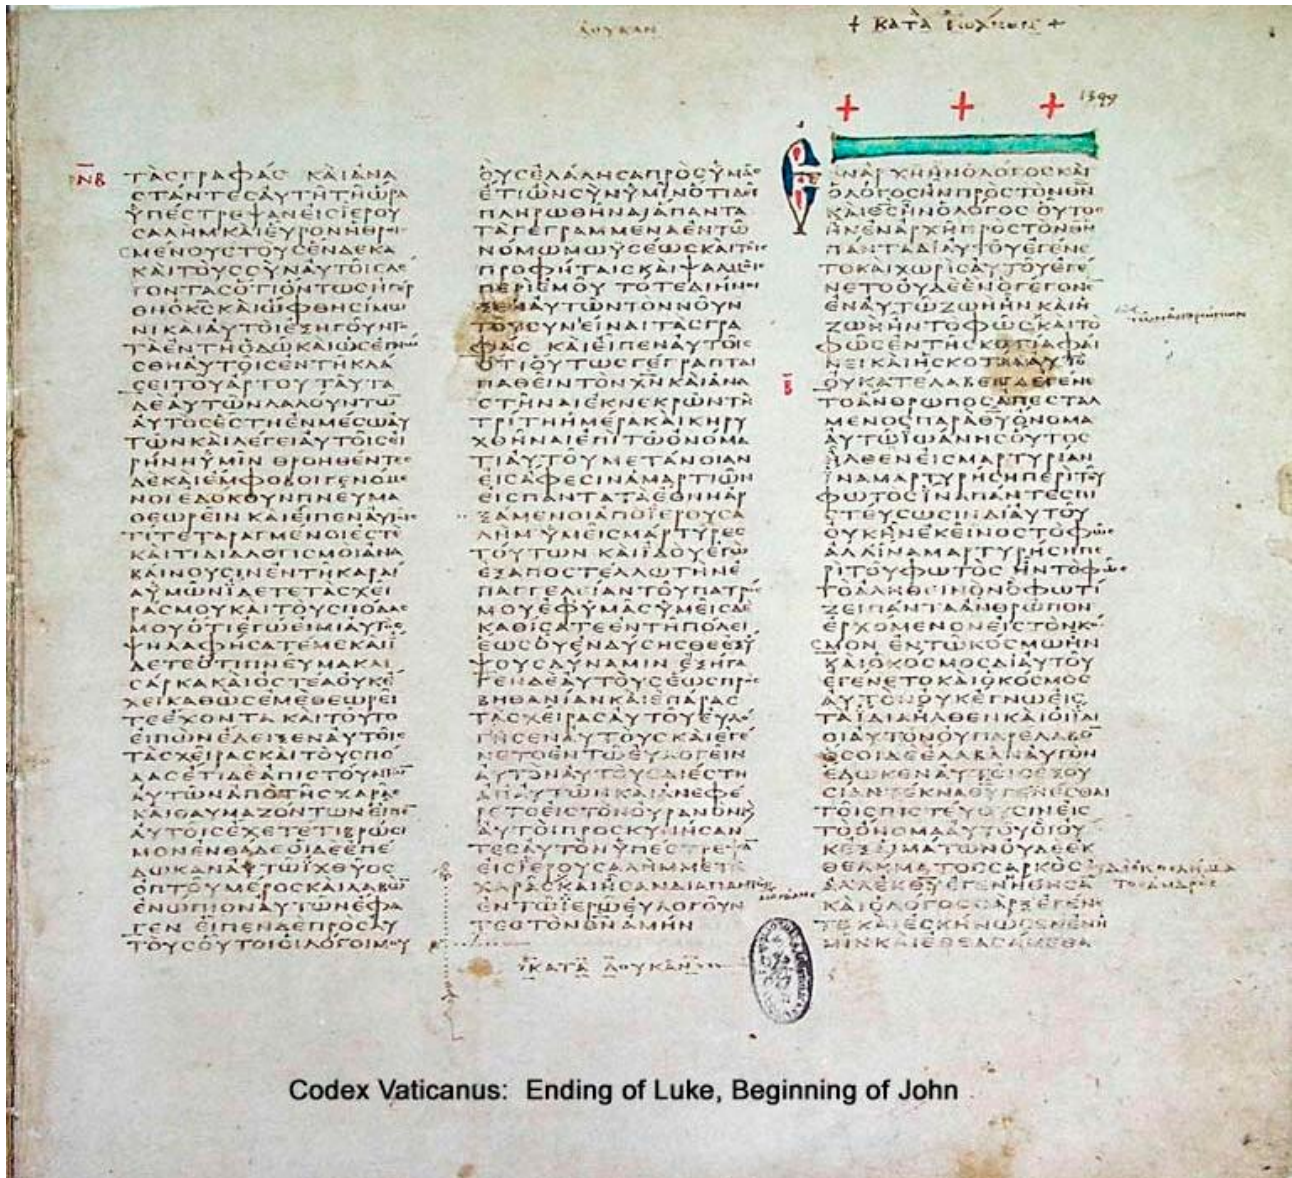 ΛΟΥΚΑΝ
+ ΚΑΤΑ ΙΩΑΝΝΗΝ +
1349
ΝΒ
ΤΑΣΓΡΑΦΑΣ ΚΑΙΑΝΑ
ΣΤΑΝΤΕΣΑΥΤΗΤΗΩΡΑ
ΥΠΕΣΤΡΕΨΑΝΕΙΣΙΕΡΟΥ
ΣΑΛΗΜΚΑΙΕΥΡΟΝΗΘΡΟΙ
ΣΜΕΝΟΥΣΤΟΥΣΕΝΔΕΚΑ
ΚΑΙΤΟΥΣΣΥΝΑΥΤΟΙΣΛΕ
ΓΟΝΤΑΣΟΤΙΟΝΤΩΣΗΓΕΡ
ΘΗΟΚΣΚΑΙΩΦΘΗΣΙΜΩ
ΝΙΚΑΙΑΥΤΟΙΕΞΗΓΟΥΝΤΟ
ΤΑΕΝΤΗΟΔΩΚΑΙΩΣΕΓΝΩ
ΣΘΗΑΥΤΟΙΣΕΝΤΗΚΛΑ
ΣΕΙΤΟΥΑΡΤΟΥ ΤΑΥΤΑ
ΔΕΑΥΤΩΝΛΑΛΟΥΝΤΩ
ΑΥΤΟΣΕΣΤΗΕΝΜΕΣΩΑΥ
ΤΩΝΚΑΙΛΕΓΕΙΑΥΤΟΙΣΕΙ
ΡΗΝΗΥΜΙΝ ΘΡΟΗΘΕΝΤΕΣ
ΔΕΚΑΙΕΜΦΟΒΟΙΓΕΝΟΜΕ
ΝΟΙΕΔΟΚΟΥΝΠΝΕΥΜΑ
ΘΕΩΡΕΙΝ ΚΑΙΕΙΠΕΝΑΥΤΟΙΣ
ΤΙΤΕΤΑΡΑΓΜΕΝΟΙΕΣΤΕ
ΚΑΙΤΙΔΙΑΛΟΓΙΣΜΟΙΑΝΑ
ΒΑΙΝΟΥΣΙΝΕΝΤΗΚΑΡΔΙ
ΑΥΜΩΝΙΔΕΤΕΤΑΣΧΕΙ
ΡΑΣΜΟΥΚΑΙΤΟΥΣΠΟΔΑΣ
ΜΟΥΟΤΙΕΓΩΕΙΜΙΑΥΤΟΣ
ΨΗΛΑΦΗΣΑΤΕΜΕΚΑΙΙ
ΔΕΤΕΟΤΙΠΝΕΥΜΑΚΑΙ
ΣΑΡΚΑΚΑΙΟΣΤΕΑΟΥΚΕ
ΧΕΙΚΑΘΩΣΕΜΕΘΕΩΡΕΙ
ΤΕΕΧΟΝΤΑ ΚΑΙΤΟΥΤΟ
ΕΙΠΩΝΕΔΕΙΞΕΝΑΥΤΟΙΣ
ΤΑΣΧΕΙΡΑΣΚΑΙΤΟΥΣΠΟ
ΔΑΣΕΤΙΔΕΑΠΙΣΤΟΥΝΤΩ
ΑΥΤΩΝΑΠΟΤΗΣΧΑΡΑΣ
ΚΑΙΘΑΥΜΑΖΟΝΤΩΝΕΙΠΕ
ΑΥΤΟΙΣΕΧΕΤΕΤΙΒΡΩΣΙ
ΜΟΝΕΝΘΑΔΕΟΙΔΕΕΠΕ
ΔΩΚΑΝΑΥΤΩΙΧΘΥΟΣ
ΟΠΤΟΥΜΕΡΟΣΚΑΙΛΑΒΩ
ΕΝΩΠΙΟΝΑΥΤΩΝΕΦΑ
ΓΕΝ ΕΙΠΕΝΔΕΠΡΟΣΑΥ
ΤΟΥΣΟΥΤΟΙΟΙΛΟΓΟΙΜΟΥ
ΟΥΣΕΛΑΛΗΣΑΠΡΟΣΥΜΑΣ
ΕΤΙΩΝΣΥΝΥΜΙΝΟΤΙΔΕΙ
ΠΛΗΡΩΘΗΝΑΙΑΠΑΝΤΑ
ΤΑΓΕΓΡΑΜΜΕΝΑΕΝΤΩ
ΝΟΜΩΜΩΥΣΕΩΣΚΑΙΤΟΙΣ
ΠΡΟΦΗΤΑΙΣΚΑΙΨΑΛΜΟΙΣ
ΠΕΡΙΕΜΟΥ ΤΟΤΕΔΙΗΝΟΙ
ΞΕΝΑΥΤΩΝΤΟΝΝΟΥΝ
ΤΟΥΣΥΝΕΙΝΑΙΤΑΣΓΡΑ
ΦΑΣ ΚΑΙΕΙΠΕΝΑΥΤΟΙΣ
ΟΤΙΟΥΤΩΣΓΕΓΡΑΠΤΑΙ
ΠΑΘΕΙΝΤΟΝΧΝΚΑΙΑΝΑ
ΣΤΗΝΑΙΕΚΝΕΚΡΩΝΤΗ
ΤΡΙΤΗΗΜΕΡΑΚΑΙΚΗΡΥ
ΧΘΗΝΑΙΕΠΙΤΩΟΝΟΜΑ
ΤΙΑΥΤΟΥΜΕΤΑΝΟΙΑΝ
ΕΙΣΑΦΕΣΙΝΑΜΑΡΤΙΩΝ
ΕΙΣΠΑΝΤΑΤΑΕΘΝΗΑΡ
ΞΑΜΕΝΟΙΑΠΟΙΕΡΟΥΣΑ
ΛΗΜ ΥΜΕΙΣΜΑΡΤΥΡΕΣ
ΤΟΥΤΩΝ ΚΑΙΙΔΟΥΕΓΩ
ΕΞΑΠΟΣΤΕΛΛΩΤΗΝΕ
ΠΑΓΓΕΛΕΙΑΝΤΟΥΠΑΤΡΟΣ
ΜΟΥΕΦΥΜΑΣΥΜΕΙΣΔΕ
ΚΑΘΙΣΑΤΕΕΝΤΗΠΟΛΕΙ
ΕΩΣΟΥΕΝΔΥΣΗΣΘΕΕΞΥ
ΨΟΥΣΔΥΝΑΜΙΝ ΕΞΗΓΑ
ΓΕΝΔΕΑΥΤΟΥΣΕΩΣΠΡΟΣ
ΒΗΘΑΝΙΑΝΚΑΙΕΠΑΡΑΣ
ΤΑΣΧΕΙΡΑΣΑΥΤΟΥΕΥΛΟ
ΓΗΣΕΝΑΥΤΟΥΣΚΑΙΕΓΕ
ΝΕΤΟΕΝΤΩΕΥΛΟΓΕΙΝ
ΑΥΤΟΝΑΥΤΟΥΣΔΙΕΣΤΗ
ΑΠΑΥΤΩΝΚΑΙΑΝΕΦΕ
ΡΕΤΟΕΙΣΤΟΝΟΥΡΑΝΟΝΚΑΙ
ΑΥΤΟΙΠΡΟΣΚΥΝΗΣΑΝ
ΤΕΣΑΥΤΟΝΥΠΕΣΤΡΕΨΑ
ΕΙΣΙΕΡΟΥΣΑΛΗΜΜΕΤΑ
ΧΑΡΑΣΚΑΙΗΣΑΝΔΙΑΠΑΝΤΟΣ
ΕΝΤΩΙΕΡΩΕΥΛΟΓΟΥΝ
ΤΕΣΤΟΝΘΝΑΜΗΝ
ΚΑΤΑ ΛΟΥΚΑΝ
ΕΝΑΡΧΗΗΝΟΛΟΓΟΣΚΑΙ
ΟΛΟΓΟΣΗΝΠΡΟΣΤΟΝΘΝ
ΚΑΙΘΣΗΝΟΛΟΓΟΣ ΟΥΤΟΣ
ΗΝΕΝΑΡΧΗΠΡΟΣΤΟΝΘΝ
ΠΑΝΤΑΔΙΑΥΤΟΥΕΓΕΝΕ
ΤΟΚΑΙΧΩΡΙΣΑΥΤΟΥΕΓΕ
ΝΕΤΟΟΥΔΕΕΝΟΓΕΓΟΝΕ
ΕΝΑΥΤΩΖΩΗΗΝ ΚΑΙΗ
ΖΩΗΗΝΤΟΦΩΣΚΑΙΤΟ
ΦΩΣΕΝΤΗΣΚΟΤΙΑΦΑΙ
ΝΕΙΚΑΙΗΣΚΟΤΙΑΑΥΤΟ
Β
ΟΥΚΑΤΕΛΑΒΕΝΕΓΕΝΕ
ΤΟΑΝΘΡΩΠΟΣΑΠΕΣΤΑΛ
ΜΕΝΟΣΠΑΡΑΘΥΟΝΟΜΑ
ΑΥΤΩΙΩΑΝΗΣΟΥΤΟΣ
ΗΛΘΕΝΕΙΣΜΑΡΤΥΡΙΑΝ
ΙΝΑΜΑΡΤΥΡΗΣΗΠΕΡΙΤΟΥ
ΦΩΤΟΣΙΝΑΠΑΝΤΕΣΠΙ
ΣΤΕΥΣΩΣΙΝΔΙΑΥΤΟΥ
ΟΥΚΗΝΕΚΕΙΝΟΣΤΟΦΩΣ
ΑΛΛΙΝΑΜΑΡΤΥΡΗΣΗΠΕ
ΡΙΤΟΥΦΩΤΟΣ ΗΝΤΟΦΩΣ
ΤΟΑΛΗΘΕΙΝΟΝΟΦΩΤΙ
ΖΕΙΠΑΝΤΑΑΝΘΡΩΠΟΝ
ΕΡΧΟΜΕΝΟΝΕΙΣΤΟΝΚΟ
ΣΜΟΝ ΕΝΤΩΚΟΣΜΩΗΝ
ΚΑΙΟΚΟΣΜΟΣΔΙΑΥΤΟΥ
ΕΓΕΝΕΤΟΚΑΙΟΚΟΣΜΟΣ
ΑΥΤΟΝΟΥΚΕΓΝΩΕΙΣ
ΤΑΙΔΙΑΗΛΘΕΝΚΑΙΟΙΙΔΙ
ΟΙΑΥΤΟΝΟΥΠΑΡΕΛΑΒΟ
ΟΣΟΙΔΕΕΛΑΒΑΝΑΥΤΟΝ
ΕΔΩΚΕΝΑΥΤΟΙΣΕΞΟΥ
ΣΙΑΝΤΕΚΝΑΘΥΓΕΝΕΣΘΑΙ
ΤΟΙΣΠΙΣΤΕΥΟΥΣΙΝΕΙΣ
ΤΟΟΝΟΜΑΑΥΤΟΥΟΙΟΥ
ΚΕΞΑΙΜΑΤΩΝΟΥΔΕΕΚ
ΘΕΛΗΜΑΤΟΣΣΑΡΚΟΣ
ΑΛΛΕΚΘΥΕΓΕΝΗΘΗΣΑ
ΚΑΙΟΛΟΓΟΣΣΑΡΞΕΓΕΝΕ
ΤΟΚΑΙΕΣΚΗΝΩΣΕΝΕΝΗ
ΜΙΝΚΑΙΕΘΕΑΣΑΜΕΘΑ
ΤΩΝΑΝΘΡΩΠΩΝ
ΟΥΔΕΕΚΘΕΛΗΜΑ
ΤΟΣΑΝΔΡΟΣ
Codex Vaticanus: Ending of Luke, Beginning of John